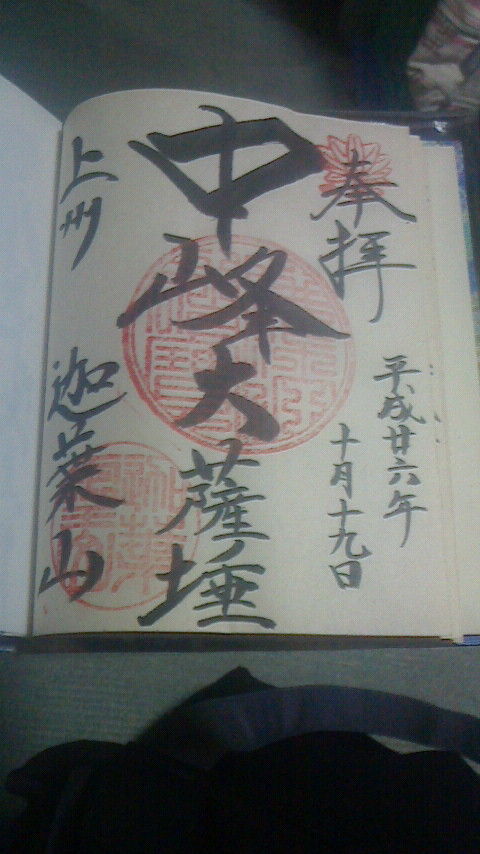 奉拝
平成廿六年
十月十九日
中峰大薩埵
上州
迦葉山